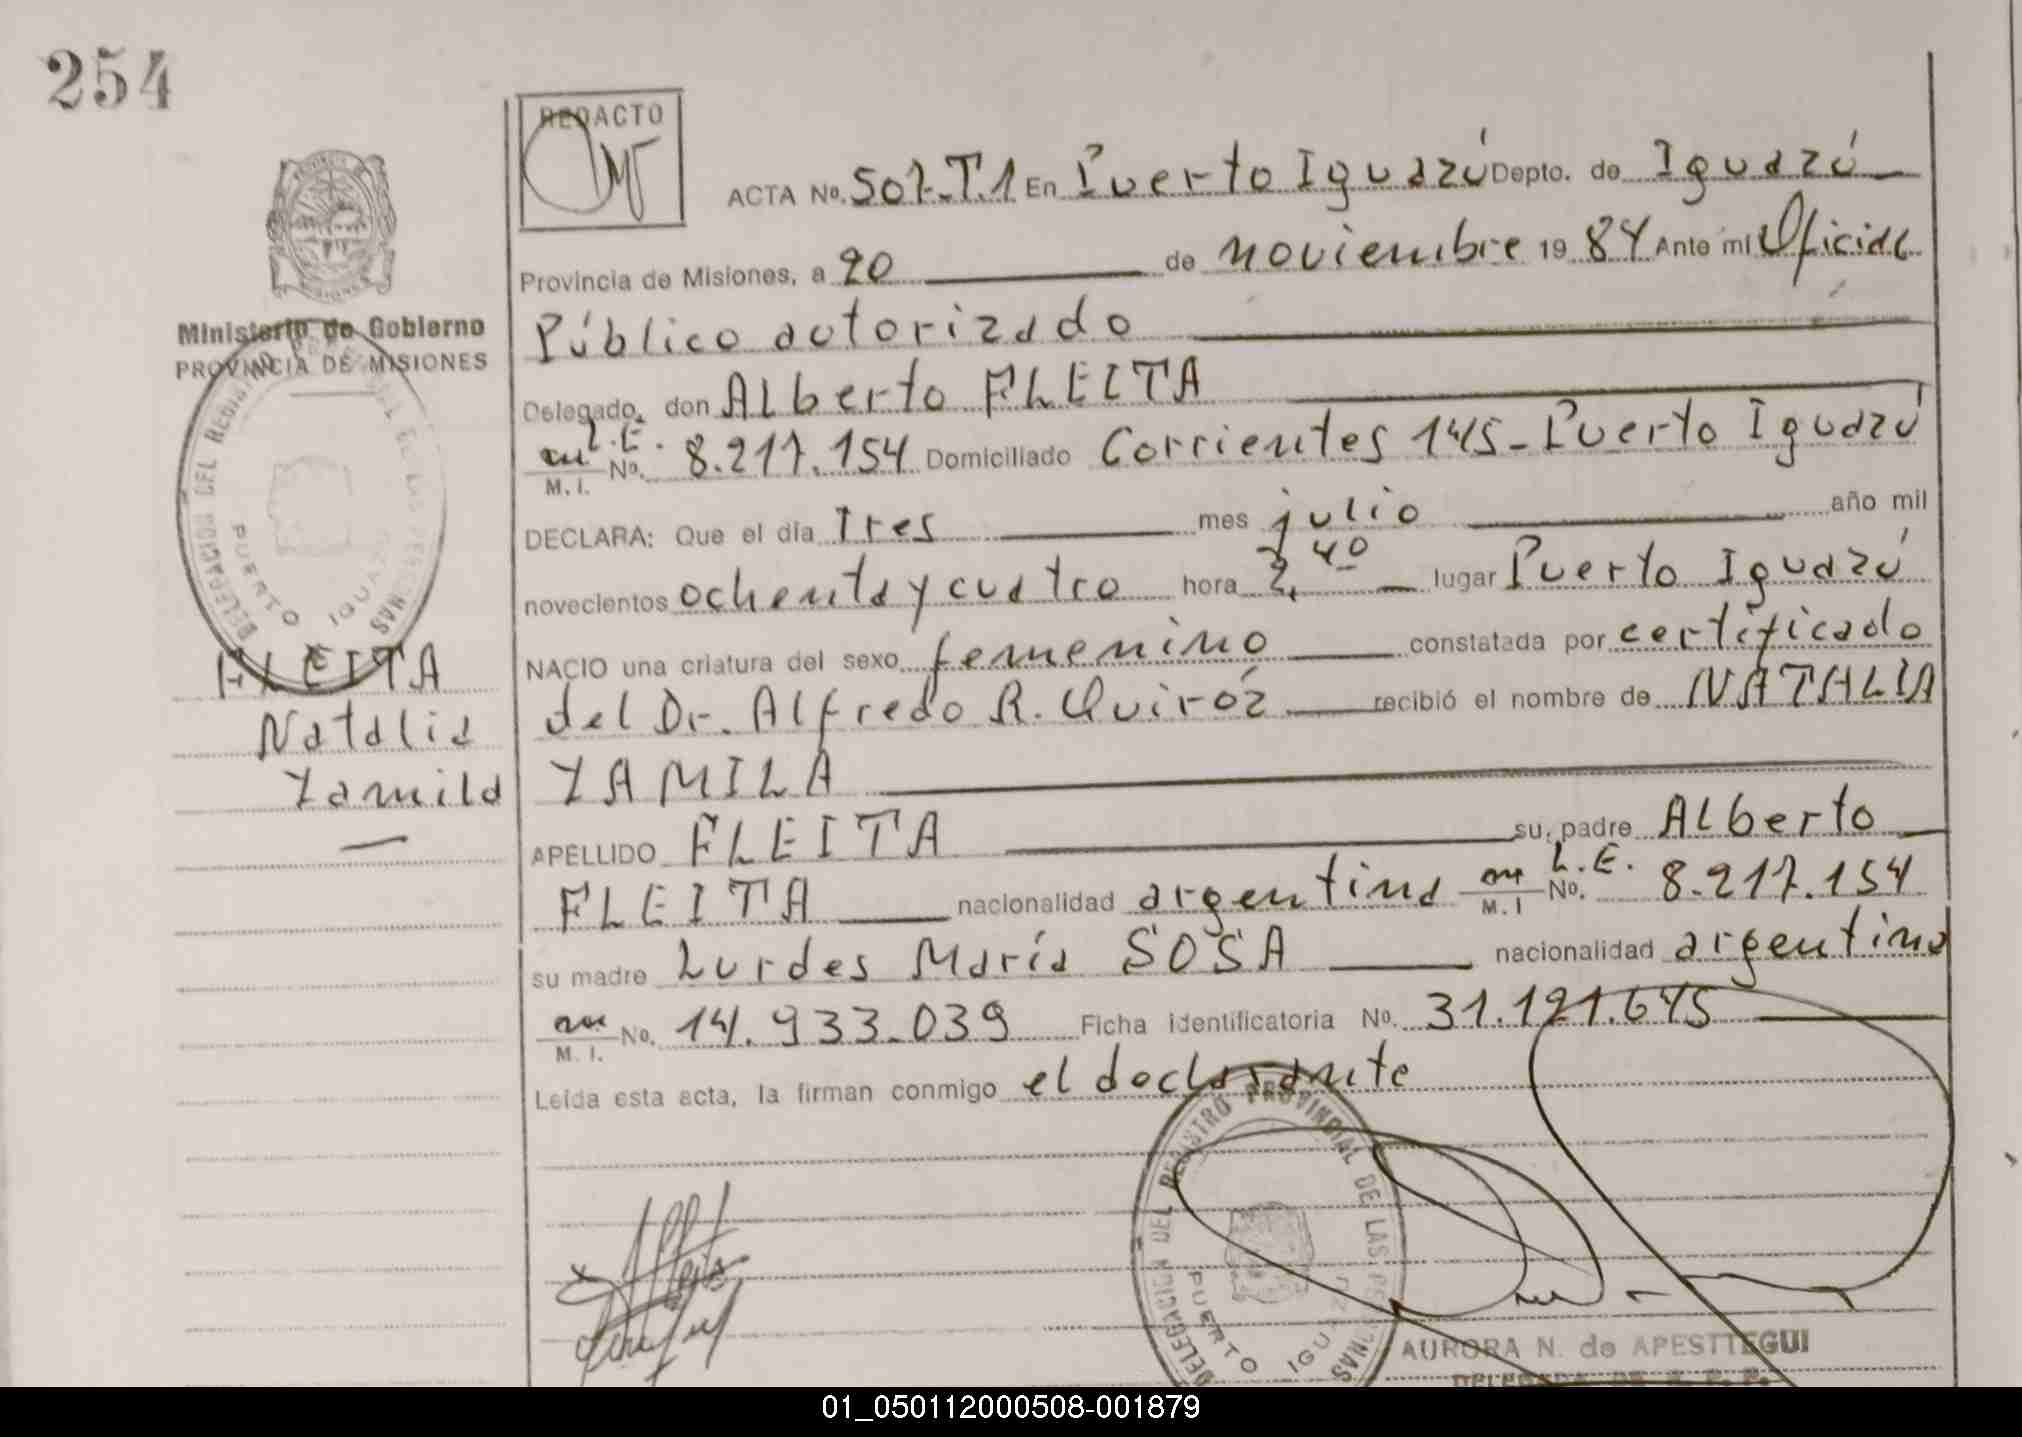 254
REDACTO
ACTA No. 507-T.1 En Puerto Iguazú Depto. de Iguazú
Provincia de Misiones, a 20 de noviembre 19 84 Ante mi Oficial
Público autorizado
Delegado, don Alberto FLEITA
L.E. No. 8.217.154 Domiciliado Corrientes 145 - Puerto Iguazú
M. I.
DECLARA: Que el día Tres mes julio año mil
novecientos ochenta y cuatro hora 2,40 lugar Puerto Iguazú
NACIO una criatura del sexo femenino constatada por certificado
del Dr. Alfredo R. Quiróz recibió el nombre de NATALIA
YAMILA
APELLIDO FLEITA su padre Alberto
FLEITA nacionalidad argentina L.E. No. 8.217.154
M. I
su madre Lurdes María SOSA nacionalidad argentina
No. 14.933.039 Ficha identificatoria No. 31.121.645
M. I.
Leída esta acta, la firman conmigo el declarante
PROVINCIA DE MISIONES
Ministerio de Gobierno
PROVINCIA DE MISIONES
DELEGACION DEL REGISTRO PROVINCIAL DE LAS PERSONAS
PUERTO IGUAZU
FLEITA
Natalia
Yamila
DELEGACION DEL REGISTRO PROVINCIAL DE LAS PERSONAS
PUERTO IGUAZU
AURORA N. de APESTTEGUI
DELEGADA DE R. P. P.
01_050112000508-001879